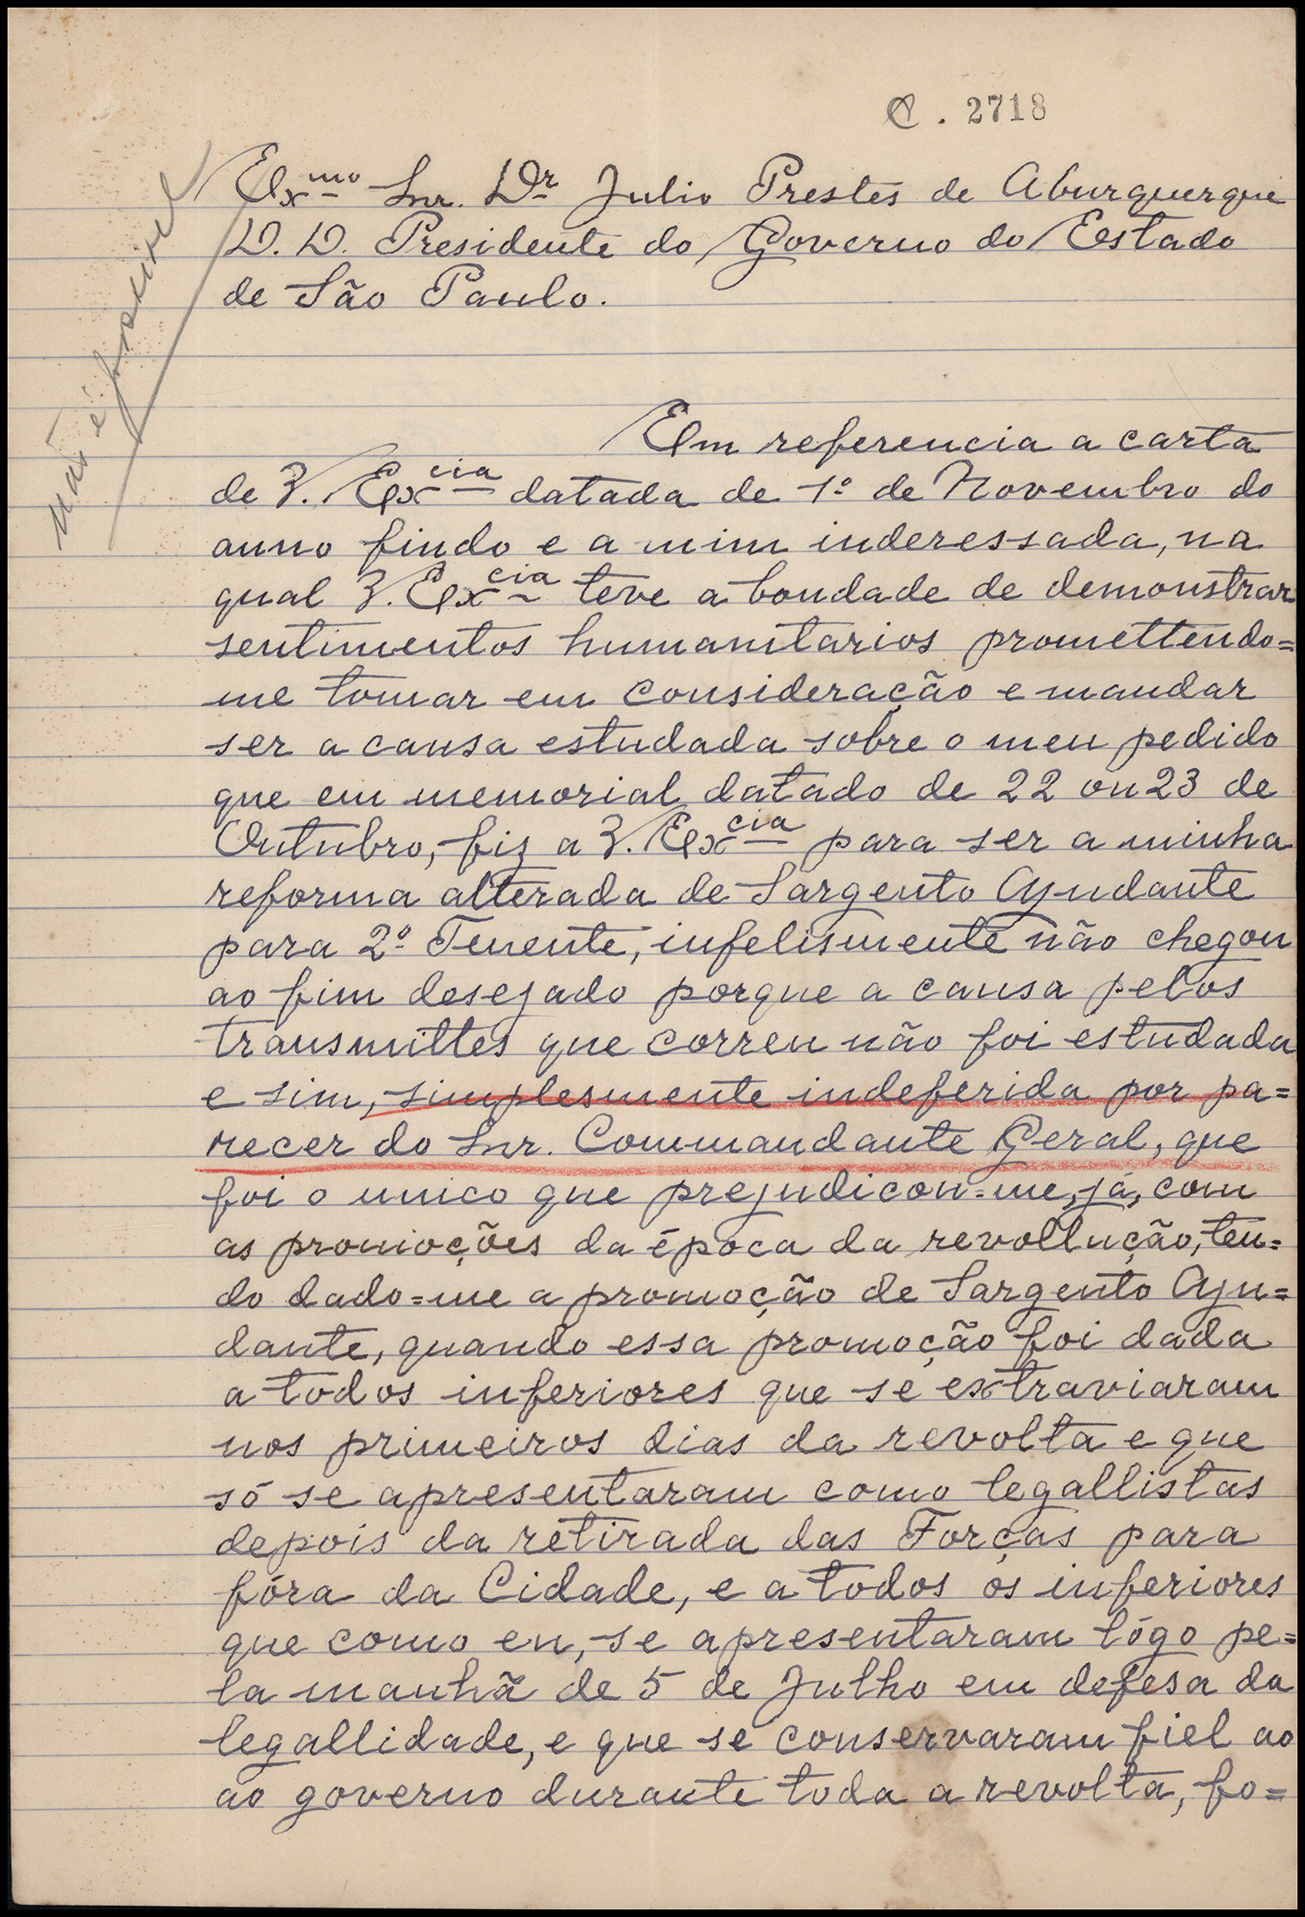 C. 2718
Exmo Snr. Dr Julio Prestes de Aburquerque
D. D. Presidente do Governo do Estado
de São Paulo.
não é possivel
Em referencia a carta
de V. Excia datada de 1º de Novembro do
anno findo e a mim inderessada, na
qual V. Excia teve a bondade de demonstrar
sentimentos humanitarios promettendo=
me tomar em consideração e mandar
ser a causa estudada sobre o meu pedido
que em memorial datado de 22 ou 23 de
Outubro, fiz a V. Excia para ser a minha
reforma alterada de Sargento Ajudante
para 2º Tenente, infelismente não chegou
ao fim desejado porque a causa pelos
transmittes que correu não foi estudada
e sim, simplesmente indeferida por pa=
recer do Snr. Commandante Geral, que
foi o unico que prejudicou=me, já, com
as promoções da época da revollução, ten=
do dado=me a promoção de Sargento Aju=
dante, quando essa promoção foi dada
a todos inferiores que se extraviaram
nos primeiros dias da revolta e que
só se apresentaram como legallistas
depois da retirada das Forças para
fóra da Cidade, e a todos os inferiores
que como eu, se apresentaram lógo pe=
la manhã de 5 de Julho em defesa da
legallidade, e que se conservaram fiel ao
ao governo durante toda a revolta, fo=